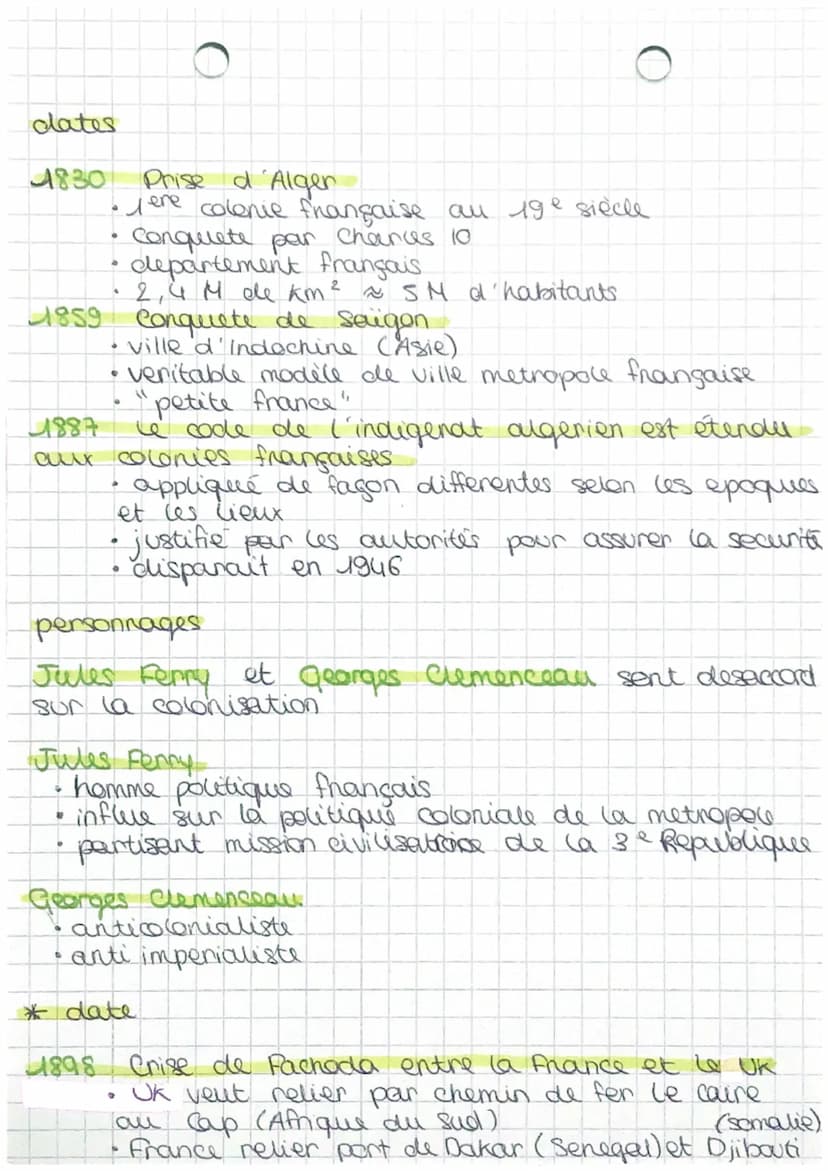 dates
1830 Prise d'Alger
• 1ère colonie française au 19e siècle
• Conquete par Charles 10
• departement français
• 2,4 M de km² ≈ 5M d'habitants
1859 Conquete de Saïgon
• ville d'Indochine (Asie)
• veritable modèle de ville metropole française
• "petite france"
1887 le code de l'indigenat algerien est étendu
aux colonies françaises
• appliqué de façon differentes selon les epoques
et les lieux
• justifié par les autorités pour assurer la securité
• disparait en 1946
personnages
Jules Ferry et Georges Clemenceau sont desaccord
sur la colonisation
Jules Ferry
• homme politique français
• influe sur la politique coloniale de la metropole
• partisant mission civilisatrice de la 3e Republique
Georges Clemenceau
• anticolonialiste
• anti imperialiste
* date
1898 Crise de Fachoda entre la France et le UK
• UK veut relier par chemin de fer le caire
au Cap (Afrique du Sud) (somalie)
• France relier port de Dakar (Senegal) et Djibouti